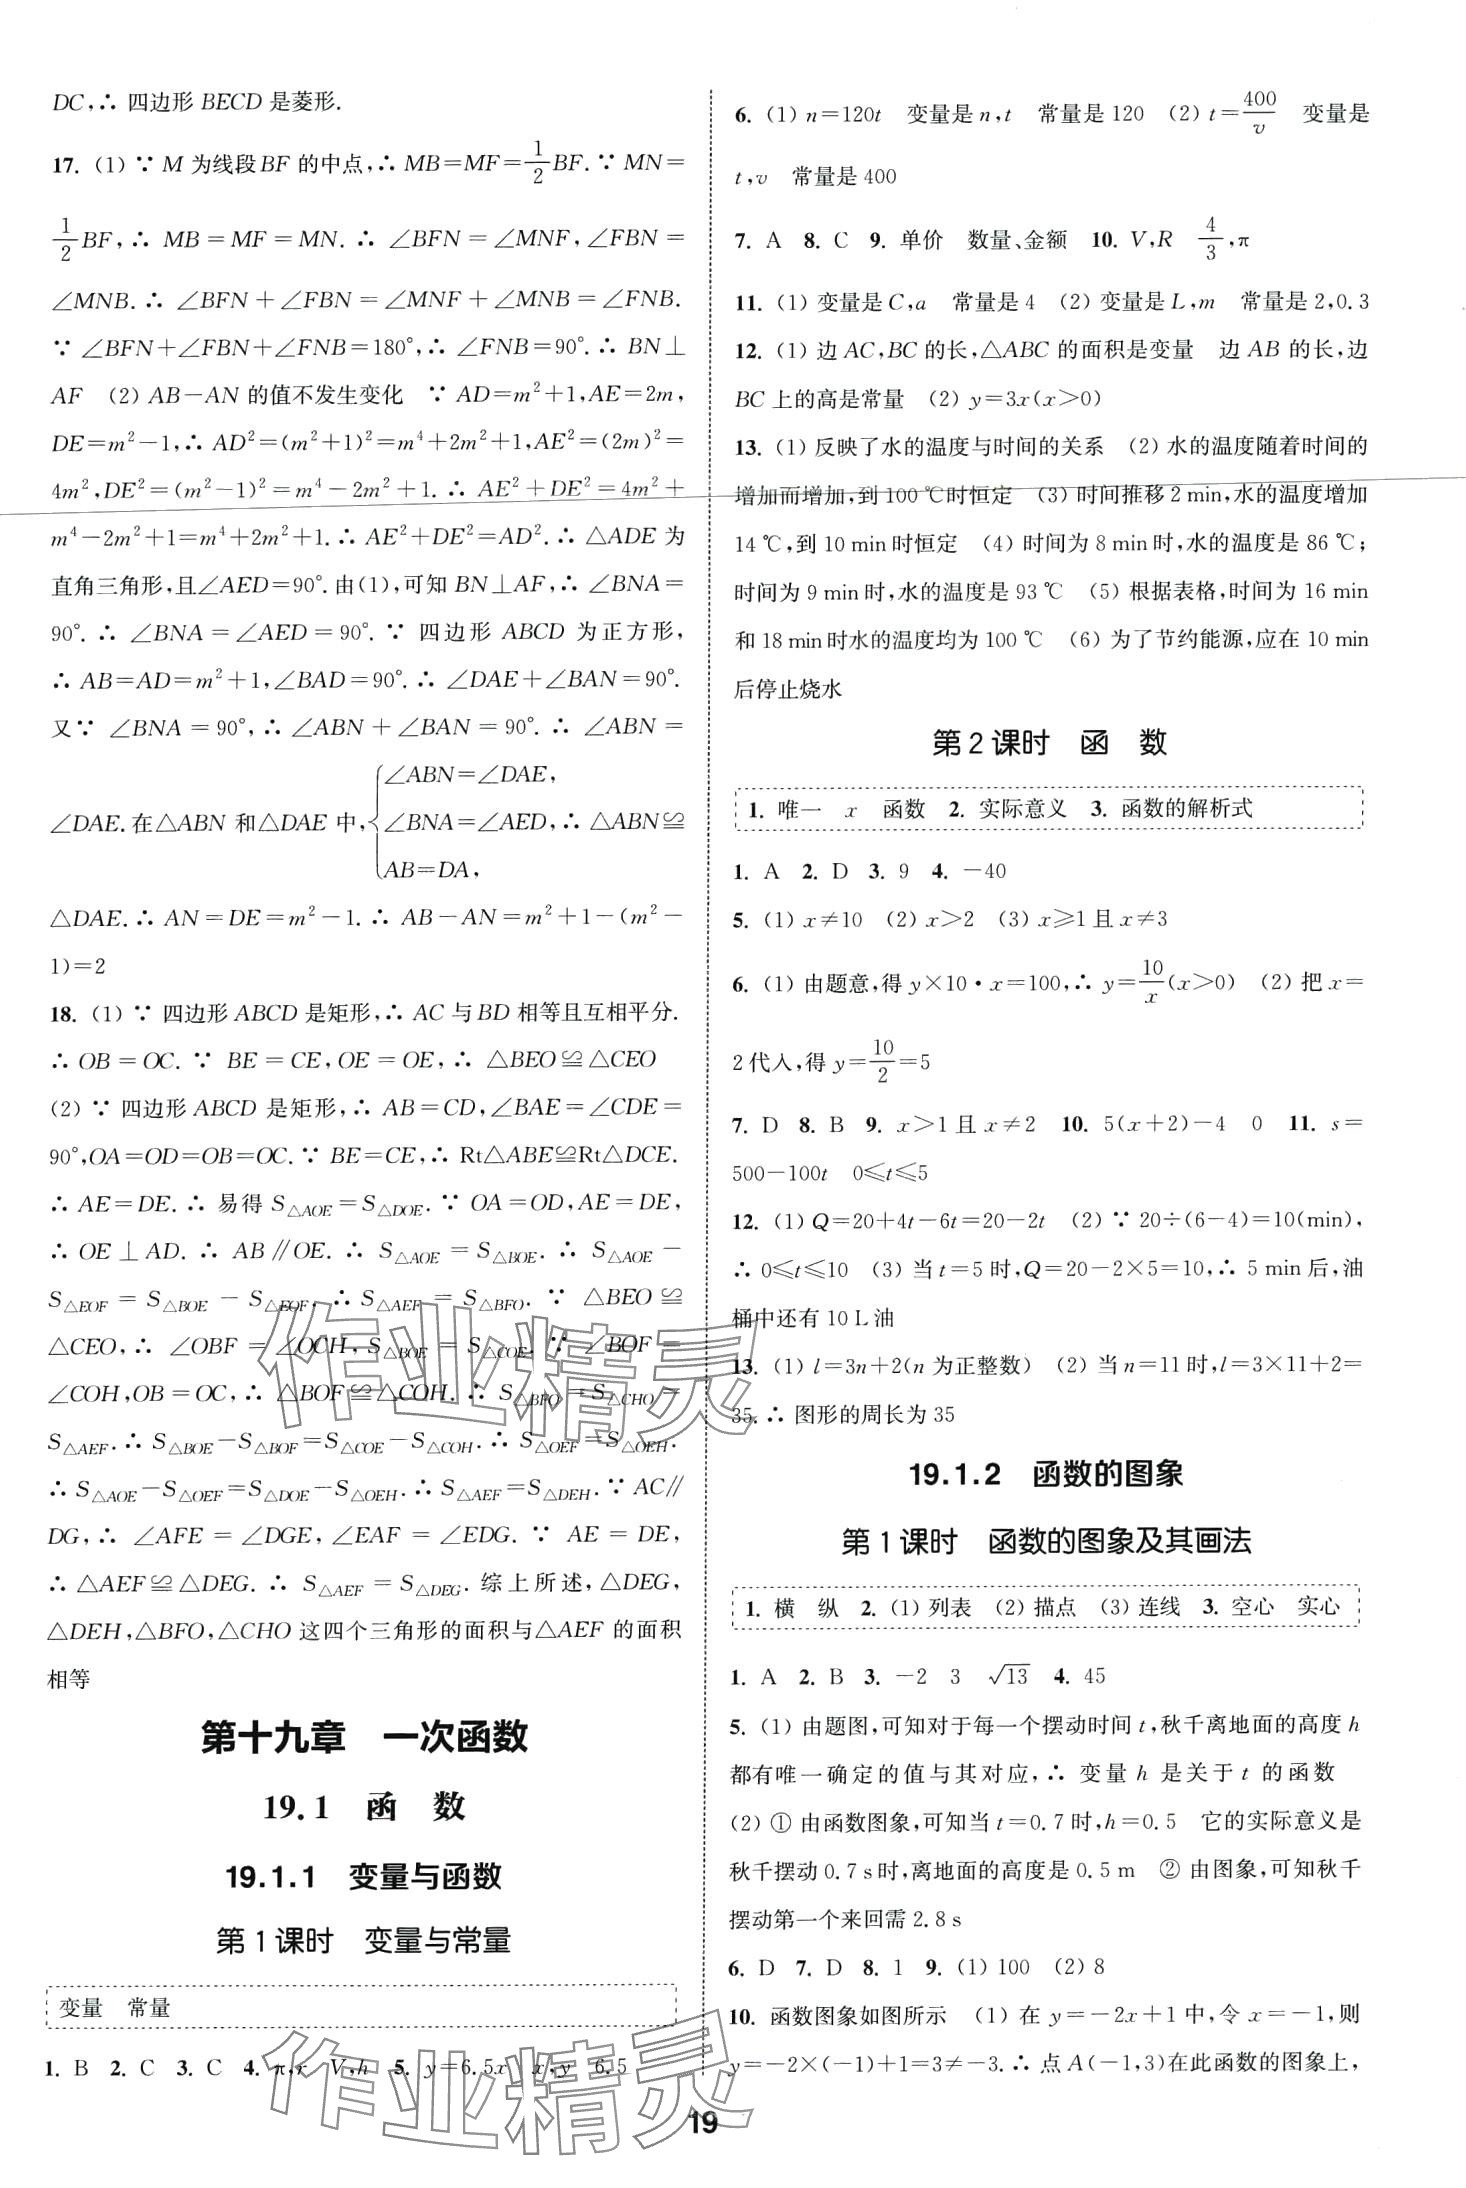 DC,∴ 四边形 BECD 是菱形.
17. (1) ∵ M 为线段BF 的中点,∴ MB=MF=1/2BF. ∵ MN=
1/2BF,∴ MB=MF=MN. ∴ ∠BFN=∠MNF,∠FBN=
∠MNB. ∴ ∠BFN+∠FBN=∠MNF+∠MNB=∠FNB.
∵ ∠BFN+∠FBN+∠FNB=180°,∴ ∠FNB=90°. ∴ BN⊥
AF (2) AB-AN 的值不发生变化 ∵ AD=m²+1,AE=2m,
DE=m²-1,∴ AD²=(m²+1)²=m⁴+2m²+1,AE²=(2m)²=
4m²,DE²=(m²-1)²=m⁴-2m²+1. ∴ AE²+DE²=4m²+
m⁴-2m²+1=m⁴+2m²+1. ∴ AE²+DE²=AD². ∴ △ADE 为
直角三角形,且∠AED=90°. 由(1),可知 BN⊥AF,∴ ∠BNA=
90°. ∴ ∠BNA=∠AED=90°. ∵ 四边形 ABCD 为正方形,
∴ AB=AD=m²+1,∠BAD=90°. ∴ ∠DAE+∠BAN=90°.
又∵ ∠BNA=90°,∴ ∠ABN+∠BAN=90°. ∴ ∠ABN=
∠DAE. 在△ABN 和△DAE 中,{∠ABN=∠DAE,
∠BNA=∠AED,∴ △ABN≌
AB=DA,
△DAE. ∴ AN=DE=m²-1. ∴ AB-AN=m²+1-(m²-
1)=2
18. (1) ∵ 四边形 ABCD 是矩形,∴ AC 与BD 相等且互相平分.
∴ OB=OC. ∵ BE=CE,OE=OE,∴ △BEO≌△CEO
(2) ∵ 四边形 ABCD 是矩形,∴ AB=CD,∠BAE=∠CDE=
90°,OA=OD=OB=OC. ∵ BE=CE,∴ Rt△ABE≌Rt△DCE.
∴ AE=DE. ∴ 易得 S△AOE=S△DOE. ∵ OA=OD,AE=DE,
∴ OE⊥AD. ∴ AB∥OE. ∴ S△AOE=S△BOE. ∴ S△AOE-
S△EOF=S△BOE-S△EOF. ∴ S△AEF=S△BFO. ∵ △BEO≌
△CEO,∴ ∠OBF=∠OCH,S△BOE=S△COE. ∵ ∠BOF=
∠COH,OB=OC,∴ △BOF≌△COH. ∴ S△BFO=S△CHO=
S△AEF. ∴ S△BOE-S△BOF=S△COE-S△COH. ∴ S△OEF=S△OEH.
∴ S△AOE-S△OEF=S△DOE-S△OEH. ∴ S△AEF=S△DEH. ∵ AC∥
DG,∴ ∠AFE=∠DGE,∠EAF=∠EDG. ∵ AE=DE,
∴ △AEF≌△DEG. ∴ S△AEF=S△DEG. 综上所述,△DEG,
△DEH,△BFO,△CHO 这四个三角形的面积与△AEF 的面积
相等
第十九章 一次函数
19.1 函 数
19.1.1 变量与函数
第 1 课时 变量与常量
变量 常量
1. B 2. C 3. C 4. π,r V,h 5. y=6.5x x,y 6.5
6. (1) n=120t 变量是 n,t 常量是 120 (2) t=400/v 变量是
t,v 常量是 400
7. A 8. C 9. 单价 数量、金额 10. V,R 4/3,π
11. (1) 变量是 C,a 常量是 4 (2) 变量是 L,m 常量是 2,0.3
12. (1) 边 AC,BC 的长,△ABC 的面积是变量 边 AB 的长,边
BC 上的高是常量 (2) y=3x(x>0)
13. (1) 反映了水的温度与时间的关系 (2) 水的温度随着时间的
增加而增加,到 100 ℃时恒定 (3) 时间推移 2 min,水的温度增加
14 ℃,到 10 min 时恒定 (4) 时间为 8 min 时,水的温度是 86 ℃;
时间为 9 min 时,水的温度是 93 ℃ (5) 根据表格,时间为 16 min
和 18 min 时水的温度均为 100 ℃ (6) 为了节约能源,应在 10 min
后停止烧水
第 2 课时 函 数
1. 唯一 x 函数 2. 实际意义 3. 函数的解析式
1. A 2. D 3. 9 4. -40
5. (1) x≠10 (2) x>2 (3) x≥1 且 x≠3
6. (1) 由题意,得 y×10·x=100,∴ y=10/x(x>0) (2) 把 x=
2 代入,得 y=10/2=5
7. D 8. B 9. x>1 且 x≠2 10. 5(x+2)-4 0 11. s=
500-100t 0≤t≤5
12. (1) Q=20+4t-6t=20-2t (2) ∵ 20÷(6-4)=10(min),
∴ 0≤t≤10 (3) 当 t=5 时,Q=20-2×5=10,∴ 5 min 后,油
桶中还有 10 L 油
13. (1) l=3n+2(n 为正整数) (2) 当 n=11 时,l=3×11+2=
35. ∴ 图形的周长为 35
19.1.2 函数的图象
第 1 课时 函数的图象及其画法
1. 横 纵 2. (1) 列表 (2) 描点 (3) 连线 3. 空心 实心
1. A 2. B 3. -2 3 √13 4. 45
5. (1) 由题图,可知对于每一个摆动时间 t,秋千离地面的高度 h
都有唯一确定的值与其对应,∴ 变量 h 是关于 t 的函数
(2) ① 由函数图象,可知当 t=0.7 时,h=0.5 它的实际意义是
秋千摆动 0.7 s 时,离地面的高度是 0.5 m ② 由图象,可知秋千
摆动第一个来回需 2.8 s
6. D 7. D 8. 1 9. (1) 100 (2) 8
10. 函数图象如图所示 (1) 在 y=-2x+1 中,令 x=-1,则
y=-2×(-1)+1=3≠-3. ∴ 点 A(-1,3)在此函数的图象上,
19
作业精灵
作业精灵